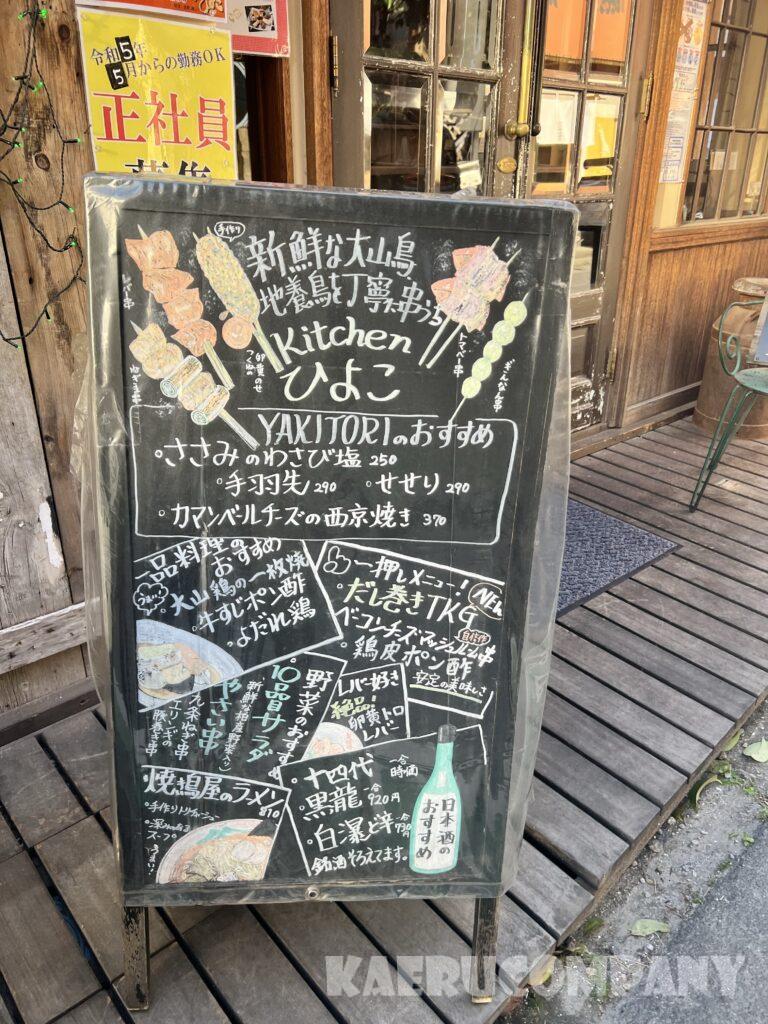 令和5年
5月からの勤務OK
正社員
手作り
新鮮な大山鳥
地養鳥を丁寧に串うち
Kitchen
ひよこ
レバー串
ねぎま串
卵黄のせ
つくね
トマベー串
ぎんなん串
YAKITORIのおすすめ
ささみのわさび塩 250
手羽先 290
せせり 290
カマンベールチーズの西京焼き 370
一品料理の
おすすめ
うまい!
大山鶏の一枚焼
牛すじポン酢
よだれ鶏
一押しメニュー!
NEW
だし巻きTKG
ベーコンチーズマッシュルーム串
自信作
鶏皮ポン酢
安定の美味しさ
野菜のおすすめ
10品目サラダ
新鮮な柏産野菜入り
やさい串
九条ねぎ串
エリンギの
豚巻き串
レバー好き
絶品!
卵黄トロ
レバー
焼鳥屋のラメン
810
手作りトリチャーシュー
スープ
うまい!
十四代 一合
時価
黒龍 一合
920円
白瀑ど辛 一合
730円
銘酒そろえてます。
日本酒の
おすすめ
KAERUCOMPANY